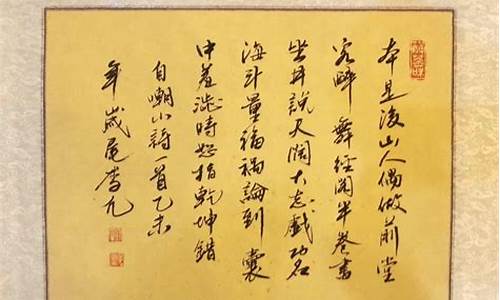 本是後山人偶做前堂
客醉舞經閣半卷書
坐井說天闊大志戲功名
海斗量福禍論到囊
中羞澀時怒指乾坤錯
自嘲小詩一首乙未
年歲尾李